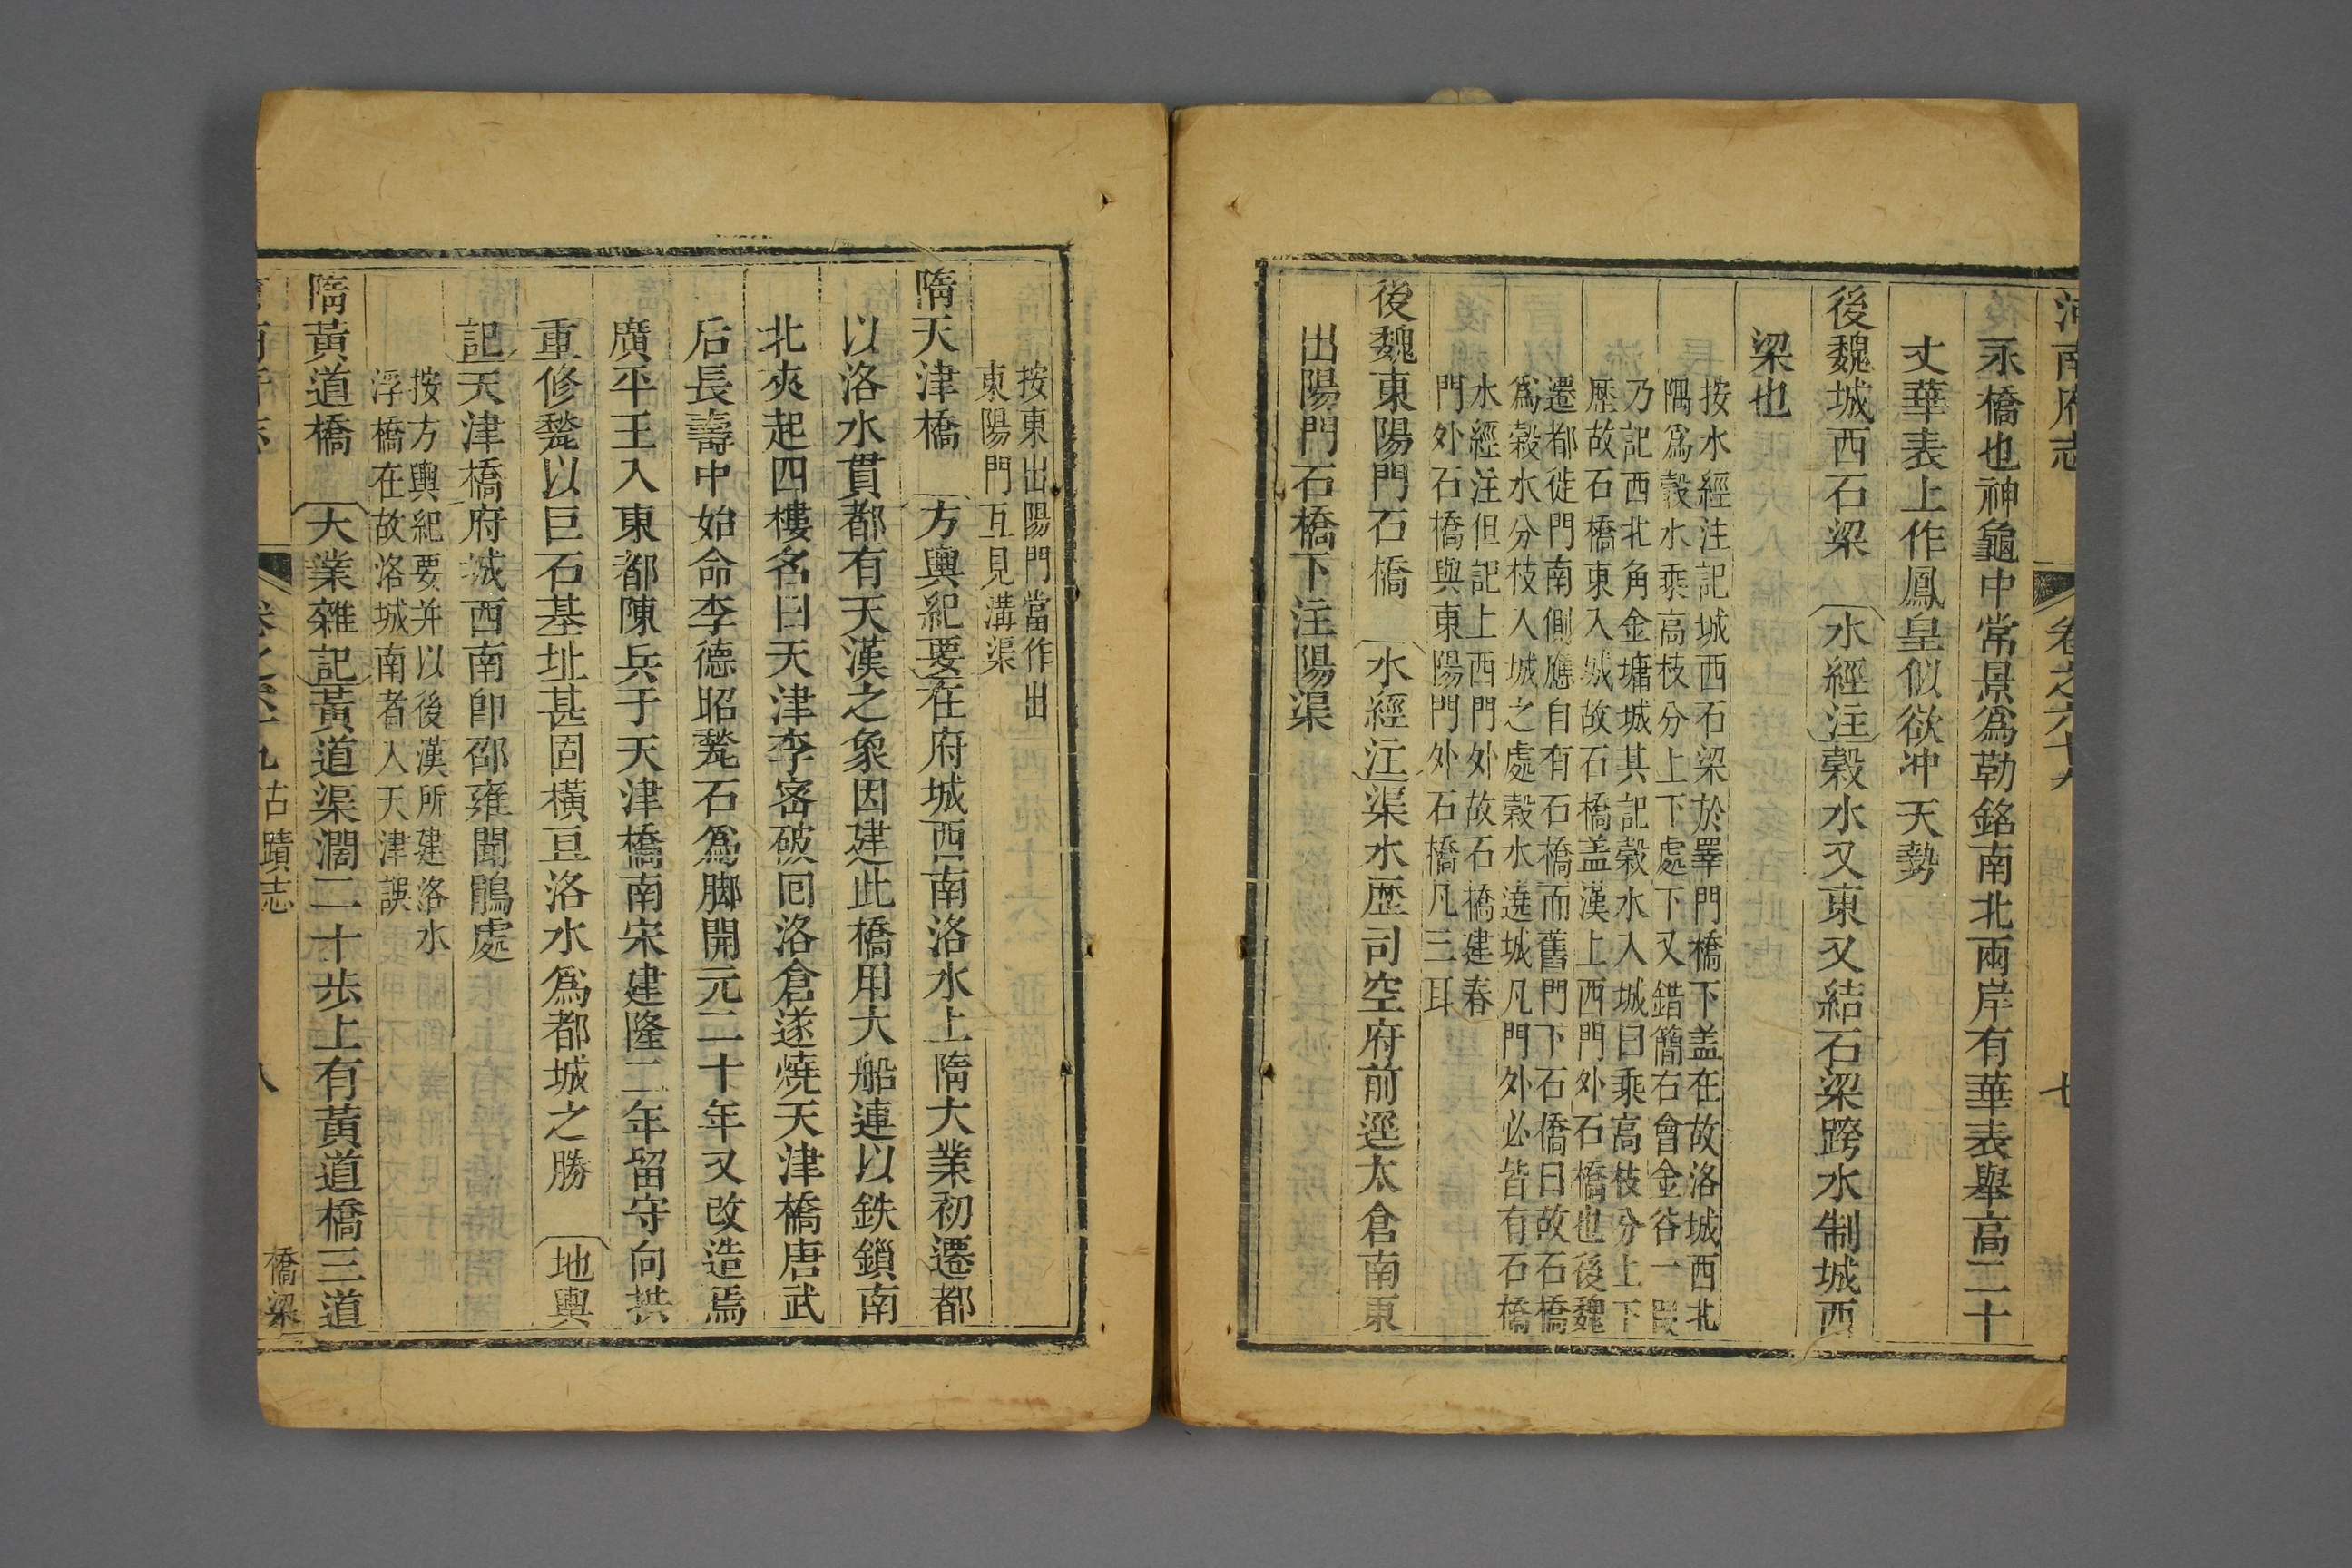 河南府志 卷之六十九 七
永橋也神龜中常景爲勒銘南北兩岸有華表舉高二十
丈華表上作鳳皇似欲冲天勢
後魏城西石梁 水經注穀水又東又結石梁跨水制城西
梁也
按水經注記城西石梁於睪門橋下盖在故洛城西北
隅爲穀水乘高枝分上下處下又錯簡右會金谷一段
乃記西北角金墉城其記穀水入城曰乘高枝分上下
歷故石橋東入城故石橋盖漢上西門外石橋也後魏
遷都徙門南側應自有石橋而舊門下石橋曰故石橋
爲穀水分枝入城之處穀水遶城凡門外必皆有石橋
水經注但記上西門外故石橋建春
門外石橋與東陽門外石橋凡三耳
後魏東陽門石橋 水經注渠水歷司空府前逕太倉南東
出陽門石橋下注陽渠
按東出陽門當作出
東陽門互見溝渠
隋天津橋 方輿紀要在府城西南洛水上隋大業初遷都
以洛水貫都有天漢之象因建此橋用大船連以鉄鎖南
北夾起四樓名曰天津李密破囘洛倉遂燒天津橋唐武
后長壽中始命李德昭甃石爲脚開元二十年又改造焉
廣平王入東都陳兵于天津橋南宋建隆二年留守向拱
重修甃以巨石基址甚固橫亘洛水爲都城之勝 地輿
記天津橋府城西南卽邵雍聞鵑處
按方輿紀要并以後漢所建洛水
浮橋在故洛城南者入天津誤
隋黃道橋 大業雜記黃道渠濶二十步上有黃道橋三道
卷之六十九 古蹟志 橋梁 八